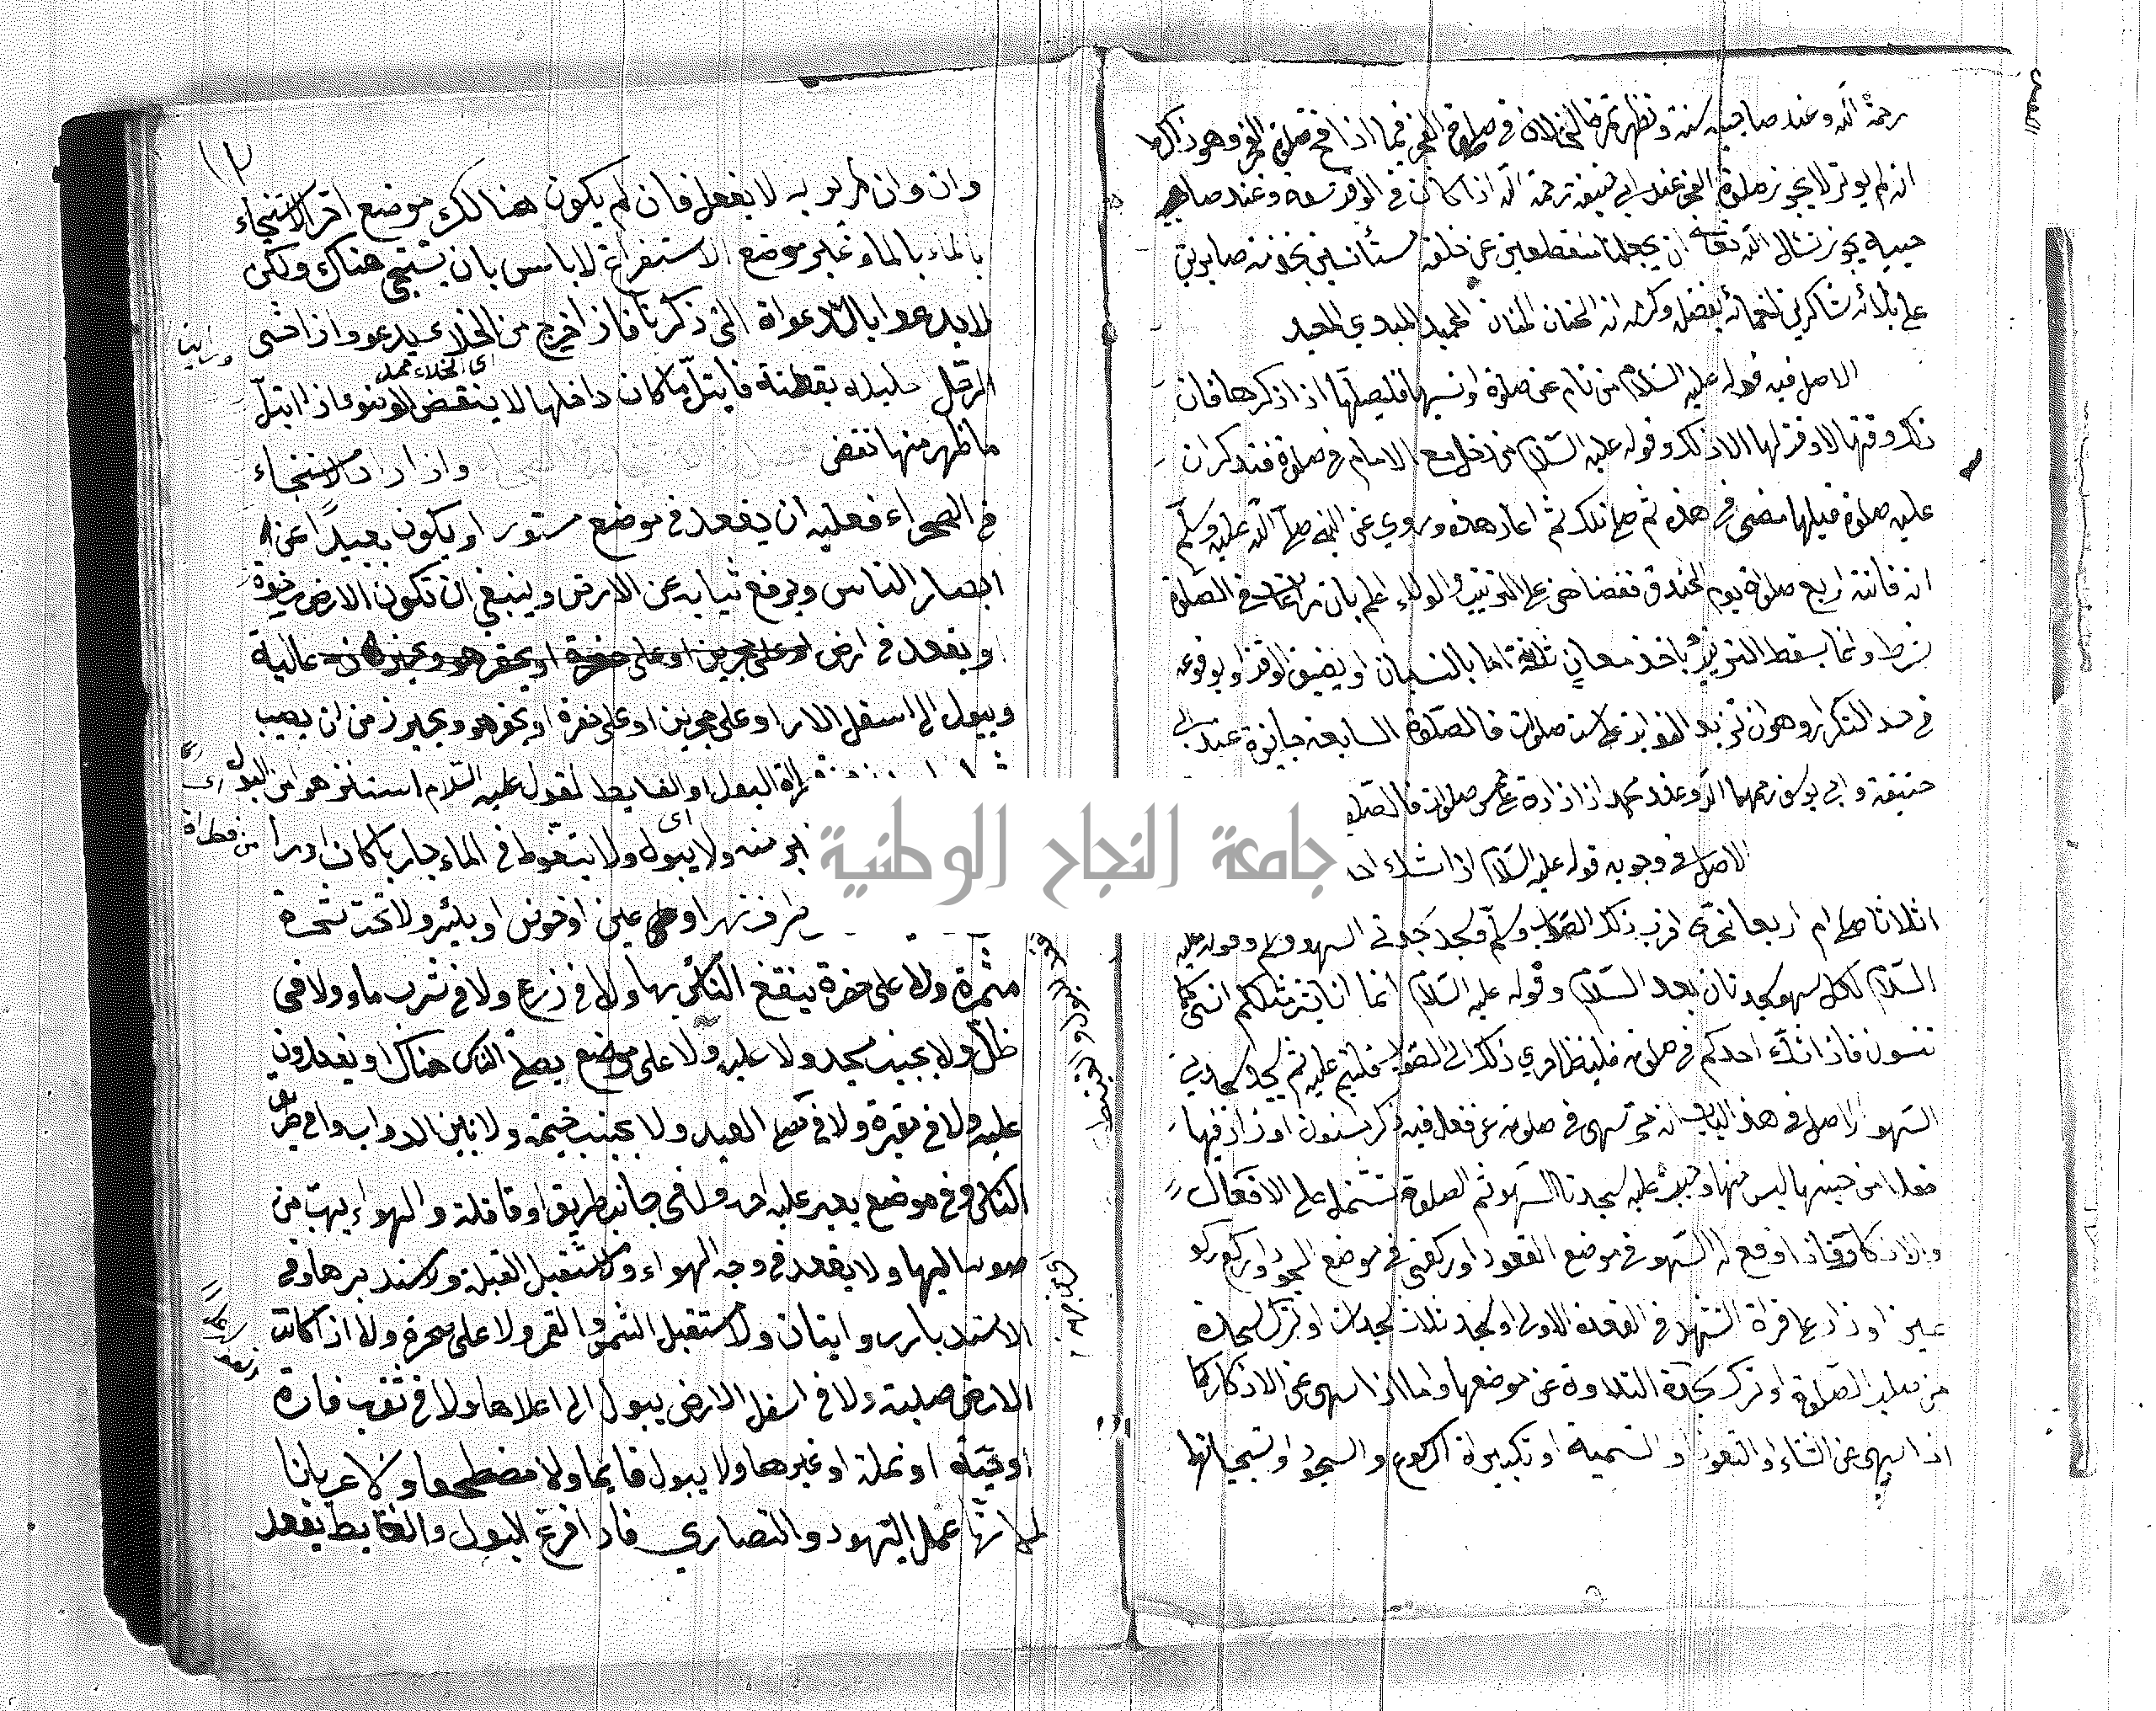 رحمه الله وعند صاحبيه سنة وتظهر ثمرة الخلاف في صلوة الفجر فيما اذا افتتح صلوة الفجر وهو ذاكر
انه لم يوتر لا يجوز صلوة الفجر عند ابي حنيفة رحمه الله اذا كان في الوقت سعة وعند صاحبيه
يجوز نسال الله تعالى ان يجعلنا منقطعين عن خلقه مستأنسين بخدمته صابرين
على بلائه شاكرين لنعمائه بفضله وكرمه انه الحنان المنان الحميد المبدي المعيد
الاصل فيه قوله عليه السلام من نام عن صلوة او نسيها فليصلها اذا ذكرها فان
ذلك وقتها لا وقت لها الا ذلك وقوله عليه السلام من دخل مع الامام في صلوة فتذكر ان
عليه صلوة قبلها مضى في هذه ثم صلى تلك ثم اعاد هذه وروي عن النبي صلى الله عليه وسلم
انه فاتته اربع صلوة يوم الخندق فقضاهن على الترتيب والولاء اعلم بان مراعات في الصلوة
شرط وانما يسقط الترتيب باحد معان ثلثة اما بالنسيان او بضيق الوقت او بوقوعه
في حد التكرار وهو ان تزيد الفوايت على ست صلوات فالصلوة السابعة جايزة عند ابي
حنيفة وابي يوسف رحمهما الله وعند محمد اذا زادة على خمس صلوات فالصلو
الاصل في وجوبه قوله عليه السلام اذا شك احد
اثلاثا صلى ام اربعا تحرى اقرب ذلك الى الصواب وسلم وسجد سجدتي السهو وقوله عليه
السلام لكل سهو سجدتان بعد السلام وقوله عليه السلام انما انا بشر مثلكم انسى كما
تنسون فاذا شك احدكم في صلوته فلينظر احري ذلك الى الصواب فليتم عليه ثم يسجد سجدتين
السهو الاصل في هذا الباب انه متى سهى في صلوته عن فعل فيه ذكر مسنون او زاد فيها
فعلا من جنسها ليس منها وجبت عليه سجدتا السهو ثم الصلوة تشتمل على الافعال
والاذكار فاذا وقع له السهو في موضع القعود او ركع في موضع السجود او ركع ركو
عين او زاد على قراة التشهد في القعدة الاولى او سجد ثلاث سجدات او ترك سجدة
من صلب الصلوة او ترك سجدة التلاوة عن موضعها واما اذا سهى عن الاذكار كما
اذا سهى عن الثناء او التعوذ او التسمية او تكبيراة الركوع والسجود او تسبيحاتهما
١٢
وان وان لم يرد به لا يفعل فان لم يكون هنالك موضع اخر لاستنجاء
بالماء بالماء غير موضع الاستفراغ لا باس بان يستنجي هناك ولكن
لا يدعوا بالدعواة التي ذكرنا فاذا خرج من الخلاء يدعو واذا حشى
اى الخلاء
الرجل احليله بقطنة فابتل ما كان داخلها لا ينقض الوضوء فاذا ابتل
ما ظهر منها نقض
واذا اراد الاستنجاء
في الصحراء فعليه ان يقعد في موضع مستور او يكون بعيدا عن
ابصار الناس ويرفع ثيابه عن الارض وينبغي ان تكون الارض رخوة
او يقعد في ارض عالية
ويبول الى اسفل الارا وعلى حجرين او على حفرة او يحفر هو ويحترز من ان يصيب
البول او الغايط لقوله عليه السلام استنزهوا من البول
من قطراة
منه ولا يبول ولا يتغوط في الماء جاريا كان او را
طرف نهر او عين او حوض او بئر ولا تحت شجرة
مثمرة ولا على خضرة ينتفع الناس بها ولا في زرع ولا في شرب ماء ولا في
ظل ولا بجنب مسجد ولا عليه ولا على موضع يصلى الناس هناك او يقعدون
عليه ولا في مقبرة ولا في مصلى العيد ولا بجنب خيمة ولا بين الدواب ولا في طر
الناس وفي موضع يعبر عليه احد ولا في جانب طريق او قافلة والهواء يهب من
صوبه اليها ولا يقعد في وجه الهواء ولا يستقبل القبلة ولا يستدبرها وفي
الاستدبار روايتان ولا يستقبل الشمس والقمر ولا على صخرة ولا اذا كانت
الارض صلبة ولا في اسفل الارض يبول الى اعلاها ولا في ثقب فارة
او حية او نملة او غيرها ولا يبول قايما ولا مضطجعا ولا عريانا
لانها عمل اليهود والنصاري فاذا فرغ البول والغايط يقعد
جامعة النجاح الوطنية